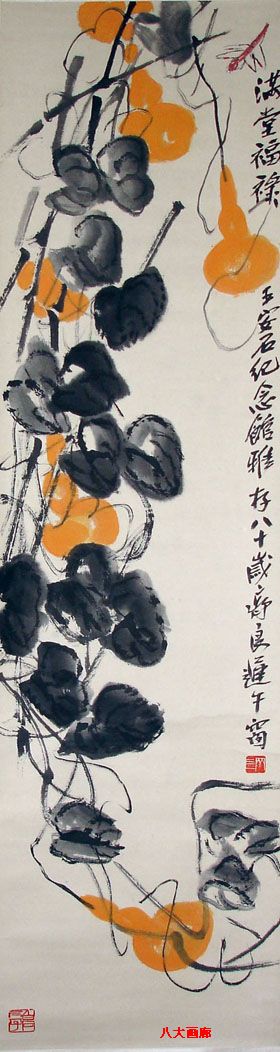 满堂福禄
王安石纪念馆雅存八十岁齐良迟午窗
八大画廊